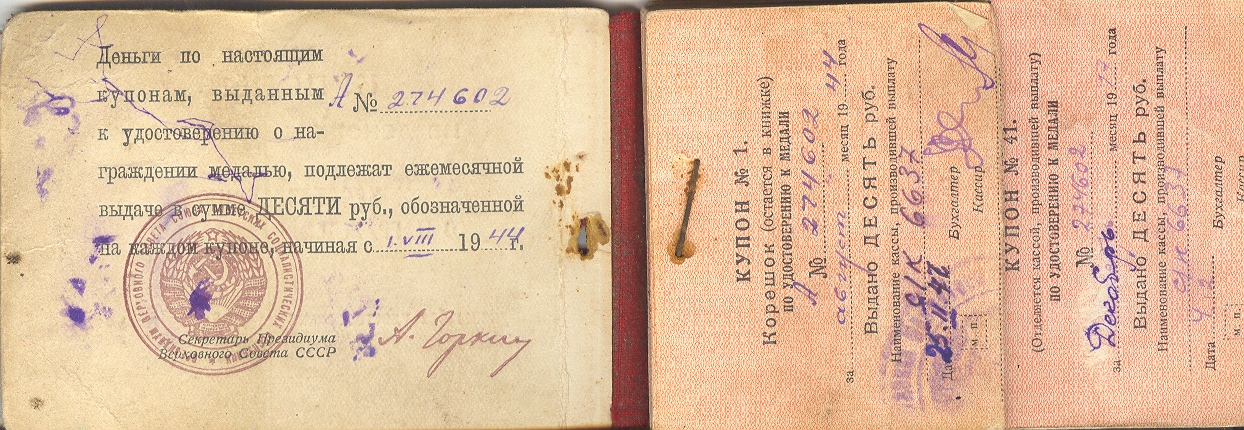 Деньги по настоящим
купонам, выданным А № 274602
к удостоверению о на-
граждении медалью, подлежат ежемесячной
выдаче в сумме ДЕСЯТИ руб., обозначенной
на каждом купоне, начиная с 1.VIII 1944 г.
Секретарь Президиума
Верховного Совета СССР
А. Горкин
КУПОН № 1.
Корешок (остается в книжке)
ПО УДОСТОВЕРЕНИЮ К МЕДАЛИ
А № 274602
за август месяц 1944 года
Выдано ДЕСЯТЬ руб.
Наименование кассы, производившей выплату
с/к 6637
Дата 25.11.47 Бухгалтер
м. п. Кассир
КУПОН № 41.
(Отделяется кассой, производившей выплату)
ПО УДОСТОВЕРЕНИЮ К МЕДАЛИ
№ 274602
за Декабрь месяц 1947 года
Выдано ДЕСЯТЬ руб.
Наименование кассы, производившей выплату
с/к 6637
Дата Бухгалтер
м. п. Кассир